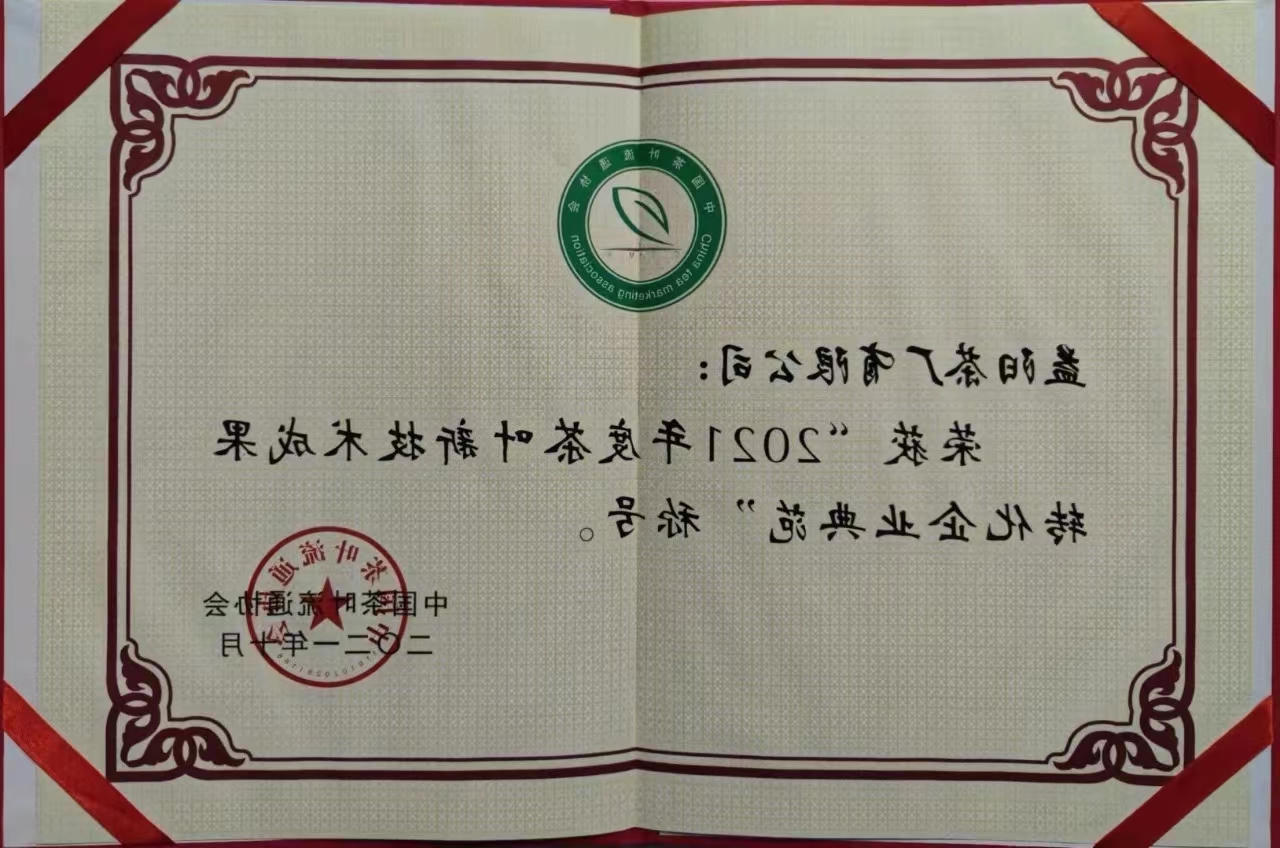 中国茶叶流通协会
China tea marketing association
益阳茶厂有限公司：
荣获“2021年度茶叶新技术成果
转化企业典范”称号。
中国茶叶流通协会
二〇二一年十月
中国茶叶流通协会